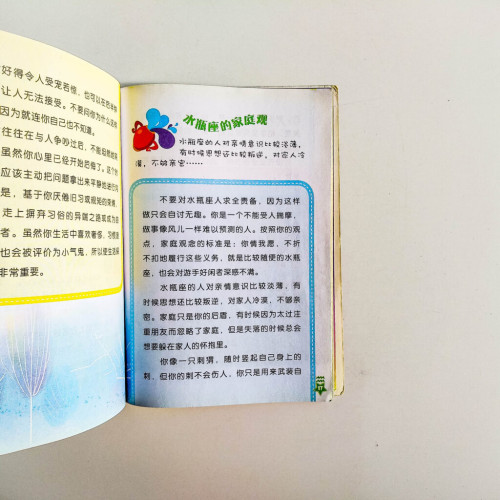 好得令人受宠若惊，也可以在把半
让人无法接受。不要问你为什么这样
因为就连你自己也不知道。
往往在与人争吵过后，不能坦然
虽然你心里已经开始后悔了。这个
应该主动把问题拿出来平静地进行
是，基于你厌倦旧习或规矩的束缚，
走上摒弃习俗的异端之路或成为
者。虽然你生活中喜欢奢侈，习惯
也会被评价为小气鬼，所以使生活
非常重要。
水瓶座的家庭观
水瓶座的人对亲情意识比较淡薄，
有时候思想还比较叛逆。对家人冷
漠，不够亲密……
不要对水瓶座人求全责备，因为这样
做只会自讨无趣。你是一个不能受人拥摩，
做事像风儿一样难以预测的人。按照你的观
点，家庭观念的标准是：你情我愿，不折
不扣地履行这些义务，就是比较随便的水瓶
座，也会对游手好闲者深感不满。
水瓶座的人对亲情意识比较淡薄，有
时候思想还比较叛逆，对家人冷漠，不够亲
密。家庭只是你的后盾，有时候因为太过注
重朋友而忽略了家庭，但是失落的时候总会
想要躲在家人的怀抱里。
你像一只刺猬，随时竖起自己身上的
刺，但你的刺不会伤人，你只是用来武装自